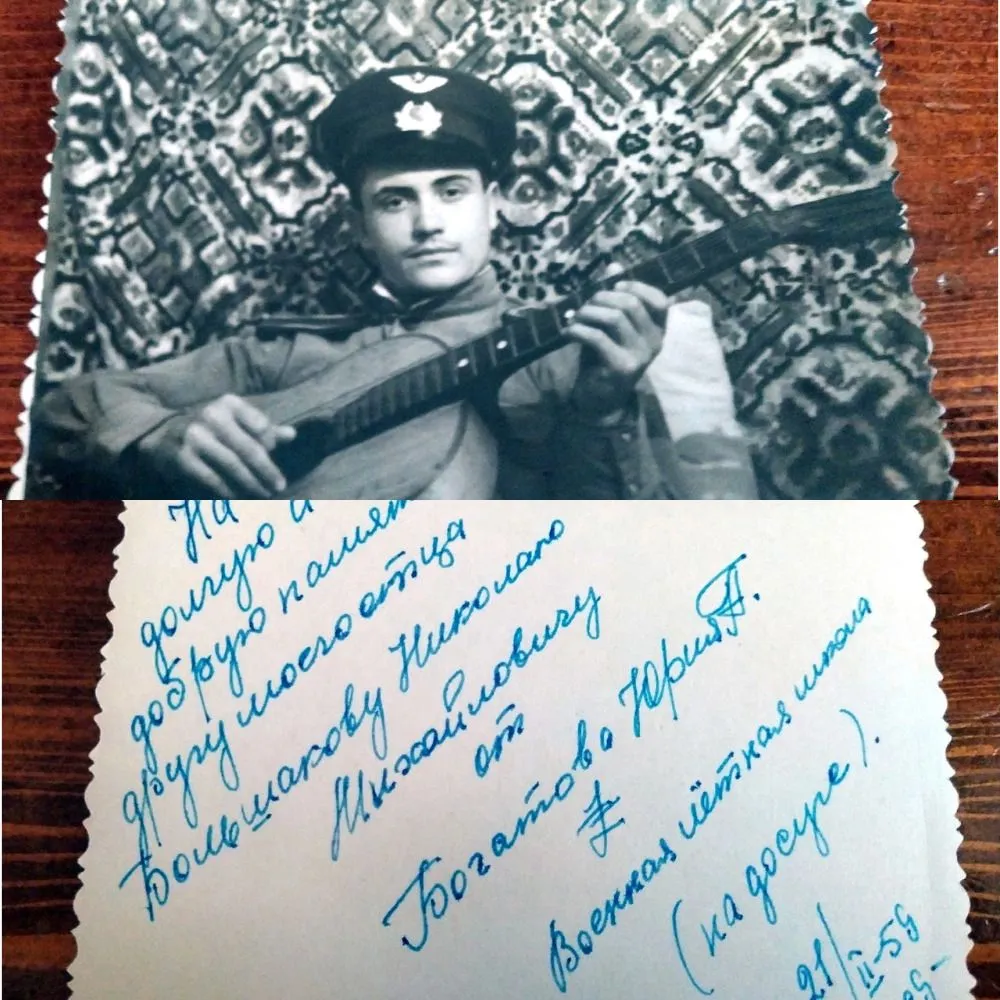 На
долгую и
добрую память
другу моего отца
Большакову Николаю
Михайловичу
от
Богатова Юрия П.
Военная лётная школа
(на досуге).
21/II-59